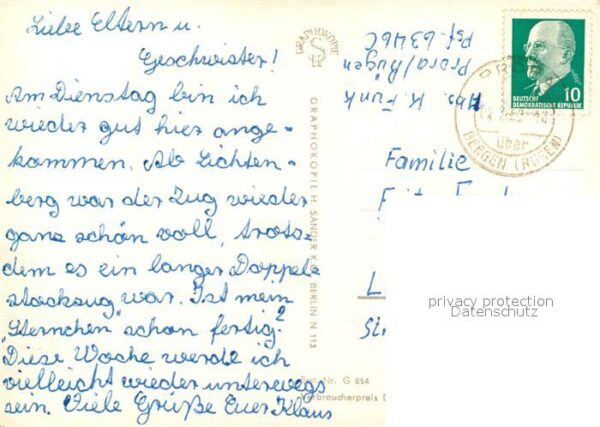 Liebe Eltern u.
Geschwister!
Am Dienstag bin ich
wieder gut hier ange-
kommen. Ab Lichten-
berg war der Zug wieder
ganz schön voll, trotz-
dem es ein langer Doppel-
stockzug war. Ist mein
"Sternchen" schon fertig?
Diese Woche werde ich
vielleicht wieder unterwegs
sein. Viele Grüße Euer Klaus
GRAPHOKOPIE
GRAPHOKOPIE H. SANDER K.G. BERLIN N 113
Nr. G 854
Verbraucherpreis
K. Funk
Prora/Rügen
Psf. 6346C
DEUTSCHE
DEMOKRATISCHE REPUBLIK
10
PRORA
über
BERGEN (RÜGEN)
Familie
L
privacy protection
Datenschutz